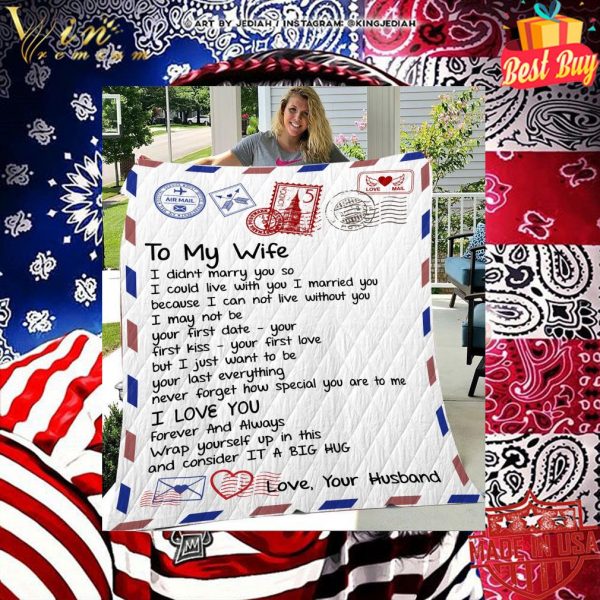 ART BY JEDIAH / INSTAGRAM: @KINGJEDIAH
Vin
Best Buy
AIR MAIL
LOVE MAIL
To My Wife
I didnt marry you so
I could live with you I married you
because I can not live without you
I may not be
your first date - your
first kiss - your first love
but I just want to be
your last everything
never forget how special you are to me
I LOVE YOU
Forever And Always
Wrap yourself up in this
and consider IT A BIG HUG
Love, Your Husband
MADE IN USA